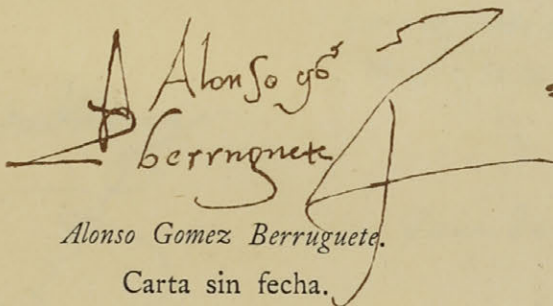 Alonso go͞s
berruguete
Alonso Gomez Berruguete.
Carta sin fecha.